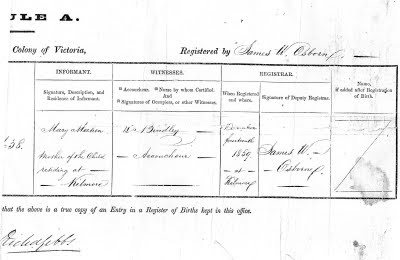 ULE A.
Colony of Victoria, Registered by James W. Osborne
INFORMANT. WITNESSES. REGISTRAR.
Signature, Description, and Residence of Informant.
(1) Accoucheur. (2) Nurse by whom Certified. And (3) Signatures of Occupiers, or other Witnesses.
When Registered and where.
Signature of Deputy Registrar.
Name, if added after Registration of Birth.
38.
Mary
Mother of the Child
residing at —
Kilmore
Bindley —
— Accoucheur —
December
fourteenth
1859
— at —
Kilmore
James W. —
— Osborne
that the above is a true copy of an Entry in a Register of Births kept in this office.
Gibbs